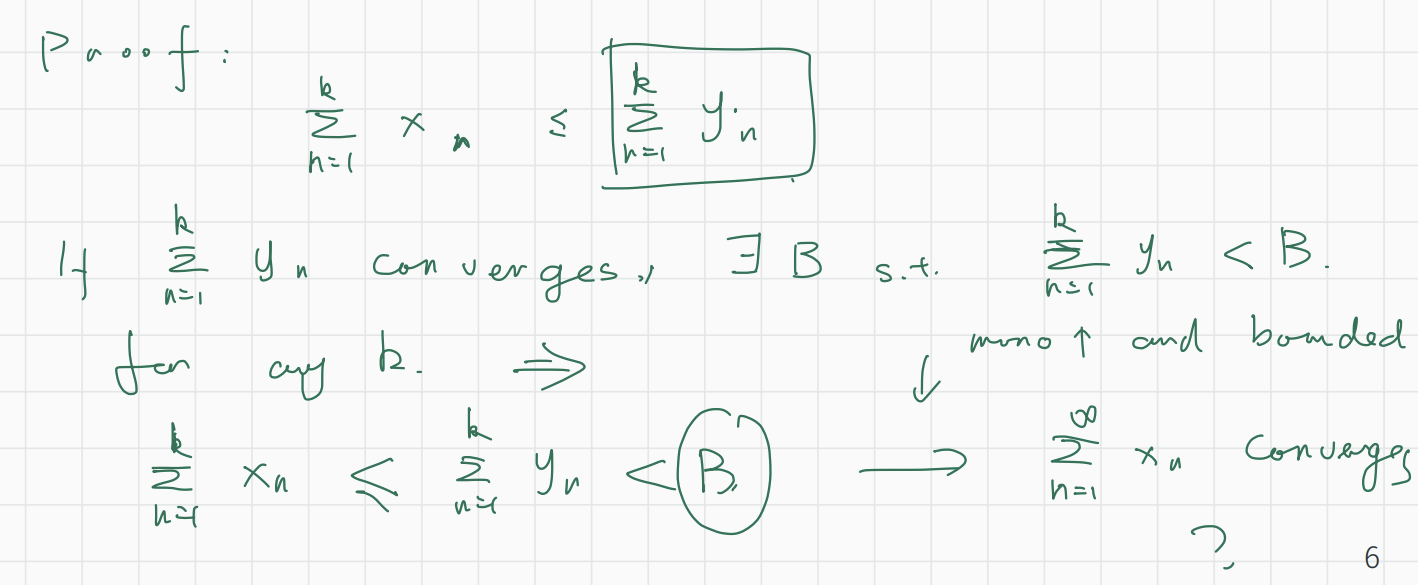 Proof:
k∑n=1 xn ≤ k∑n=1 yn
If k∑n=1 yn converges, ∃ B s.t. k∑n=1 yn < B.
for any k. ⇒ ↓ mono ↑ and bounded
k∑n=1 xn ≤ k∑n=1 yn < B, → ∞∑n=1 xn Converges
?
6